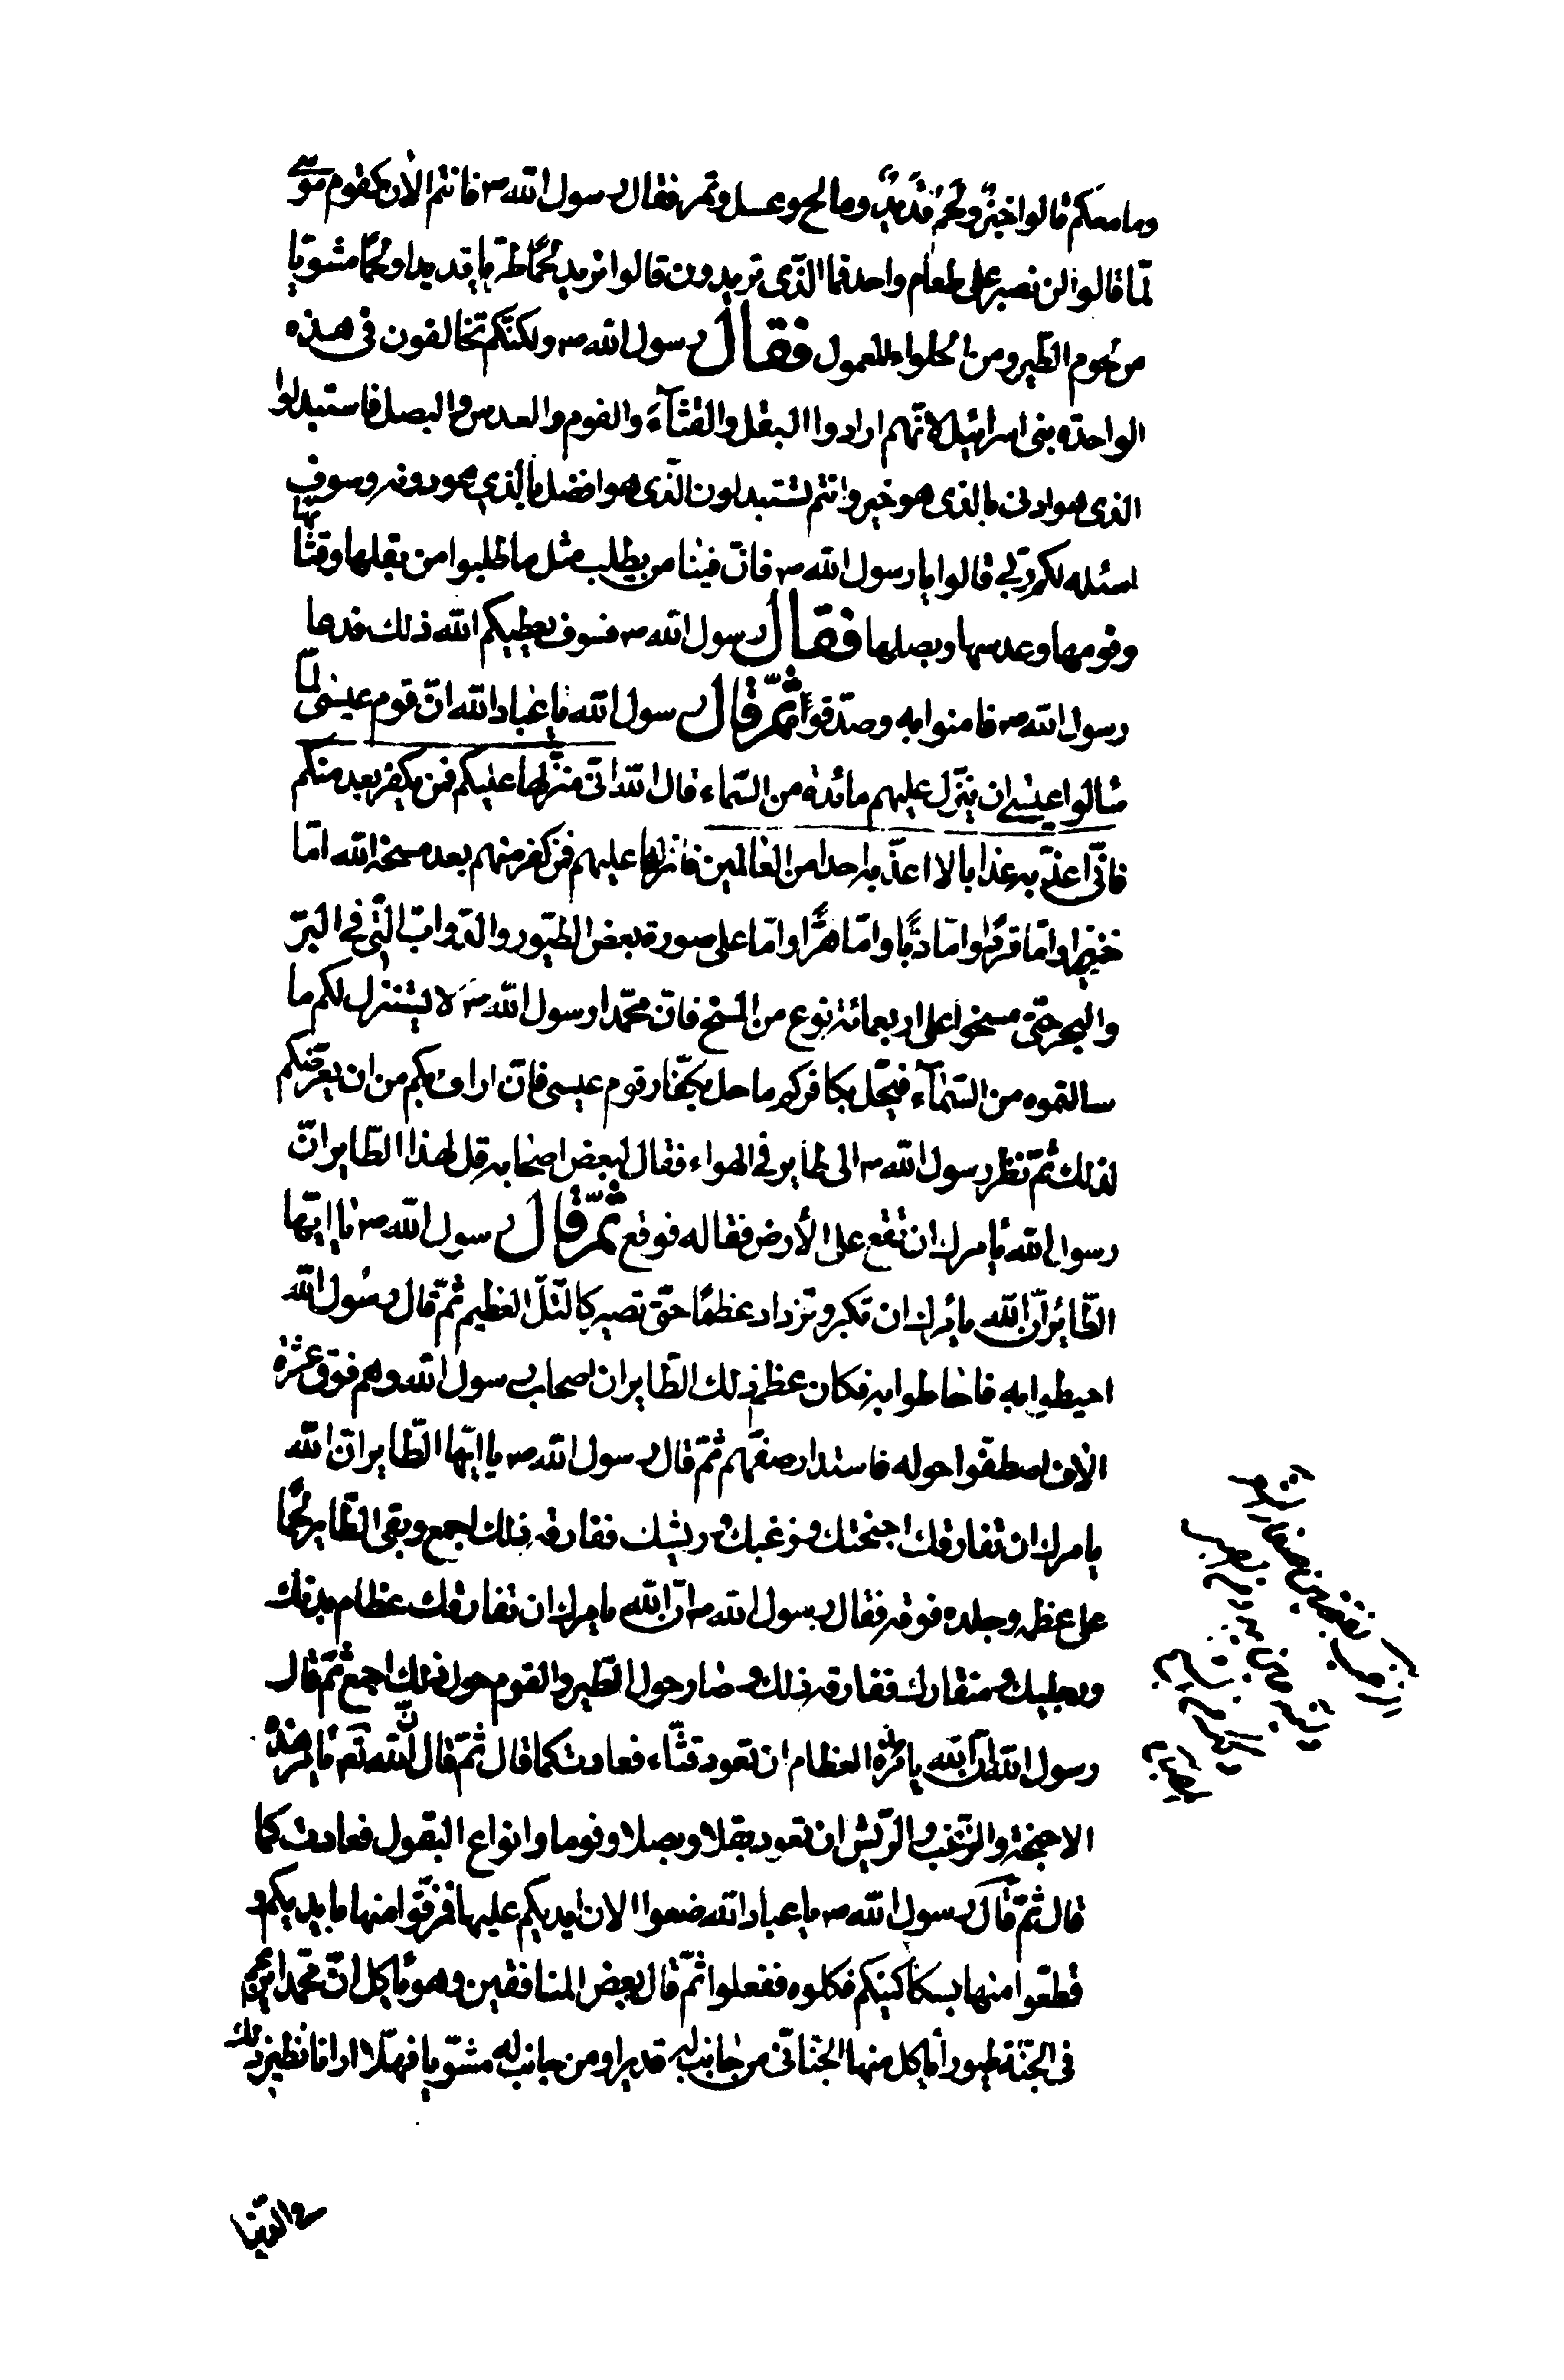 وما معكم قالوا خبز ولحم قديد ومالح وعسل وتمر فقال رسول الله ص فانتم الآن كقوم موسى
لمّا قالوا لن نصبر على طعام واحد فما الذّى تريدون قالوا نريد لحمًا طريا قديدا ولحمًا مشويا
من لحوم الطير ومن الحلواء المعمول فقال رسول الله ص ولكنّكم تخالفون فى هذه
الواحدة بنى اسرائيل لانّهم ارادوا البقل والقثآء والفوم والعدس والبصل فاستبدلوا
الذى هو ادنى بالذى هو خير وانتم تستبدلون الّذى هو افضل بالّذى هو دونه وسوف
اسئله لكم ربّى قالوا يا رسول الله ص فانّ فينا من يطلب مثل ما طلبوا من بقلها وقثائها
وفومها وعدسها وبصلها فقال رسول الله ص فسوف يعطيكم الله ذلك بدعا
رسول الله ص فامنوا به وصدقوا ثمّ قال رسول الله يا عباد الله انّ قوم عيسى لمّا
سالوا عيسى ان ينزّل عليهم مائدة من السّماء قال الله انّى منزّلها عليكم فمن يكفر بعد منكم
فانّى اعذّبه عذابا لا اعذّبه احدا من العالمين فانزلها عليهم فمن كفر منهم بعد مسخه الله امّا
خنزيرا وامّا قردًا وامّا دبًّا وامّا هرًّا وامّا على صورة بعض الطّيور والدّوابّ الّتى فى البرّ
والبحر حتّى مسخوا على اربعمائة نوع من المسخ فانّ محمّدا رسول الله ص لا يستنزل لكم ما
سالتموه من السّمآء فيحّل بكافركم ما حل بكفّار قوم عيسى فانّ اراف بكم من ان يعرّضكم
لذلك ثمّ نظر رسول الله ص الى طاير فى الهواء فقال لبعض اصحابه قل لهذا الطّاير انّ
رسول الله يامرك ان تقع على الأرض فقاله فوقع ثمّ قال رسول الله ص يا ايّها
الطّائر انّ الله يامرك ان تكبر وتزداد عظمًا حتّى تصير كالتّلّ العظيم ثمّ قال رسول الله
احيطوا به فاحاطوا به فكان عظم ذلك الطّاير ان اصحاب رسول الله وهم فوق عشرة
الاف اصطفّوا حوله فاستدار صفّهم ثمّ قال رسول الله ص يا ايّها الطّاير انّ الله
يامرك ان تفارقك اجنحتك وزغبك وريشك ففارقه ذلك اجمع وبقى الطّاير لحمًا
على عظم وجلده فوقه فقال رسول الله ص انّ الله يامرك ان تفارقك عظام بدنك
ورجليك ومنقارك ففارقه ذلك وصار حول الطّير والقوم حول ذلك اجمع ثمّ قال
رسول الله انّ الله يامر هذه العظام ان تعود قثّاء فعادت كما قال ثمّ قال انّ الله تع يامر هذه
الاجنحة والزّغب والرّيش ان تعود بقلا وبصلا وفوما وانواع البقول فعادت كما
قال ثمّ قال رسول الله ص يا عباد الله ضعوا الان ايديكم عليها فمزّقوا منها بايديكم و
قطّعوا منها بسكاكينكم فكلوه ففعلوا ثمّ قال بعض المنافقين وهو ياكل انّ محمّدا يزعم
فى الجنّة طيورا ياكل منها الجنانّى من جانب له قديدا ومن جانب له مشوّيا فهلّا ارانا نظير ذلك
فى الدّنيا